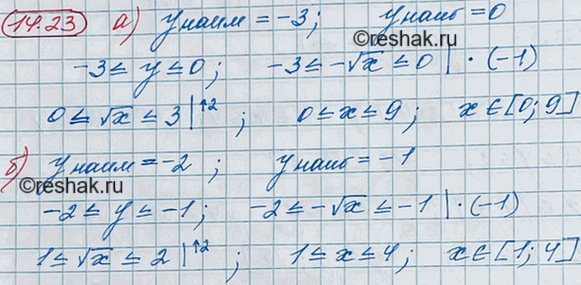 14.23 а) yнаим = -3; yнаиб = 0
©reshak.ru
-3 ≤ y ≤ 0; -3 ≤ -√x ≤ 0 | · (-1)
0 ≤ √x ≤ 3 |↑2 ; 0 ≤ x ≤ 9; x ∈ [0; 9]
б) yнаим = -2 ; yнаиб = -1
©reshak.ru
-2 ≤ y ≤ -1; -2 ≤ -√x ≤ -1 | · (-1)
1 ≤ √x ≤ 2 |↑2 ; 1 ≤ x ≤ 4; x ∈ [1; 4]
©reshak.ru